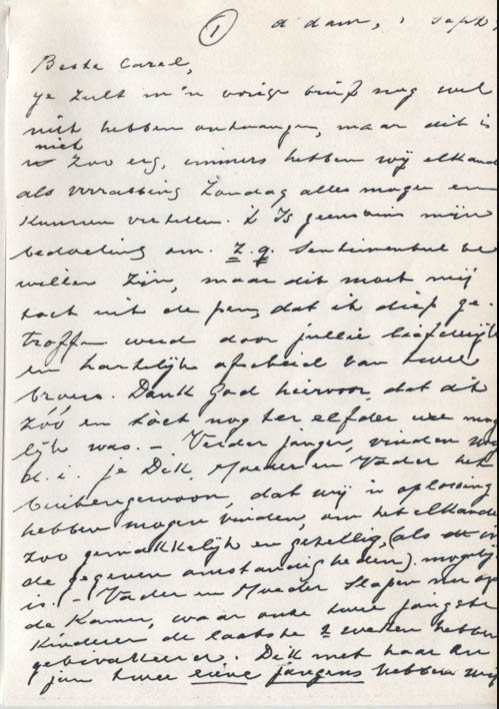 1
A'dam, 1 Sept.
Beste Carel,
Je zult m'n vorige brief nog wel
niet hebben ontvangen, maar dit is
niet zoo erg, immers hebben wij elkand
als verrassing Zondag alles mogen en
kunnen vertellen. 't Is geenszins mijn
bedoeling om z.g. sentimenteel te
willen zijn, maar dit moet mij
toch uit de pen, dat ik diep ge-
troffen werd door jullie liefderijk
en hartelijk afscheid van twee
broers. Dank God hiervoor, dat dit
zóó en tòch nog ter elfder ure mog
lijk was. – Verder jongen, vinden wij
d.i. je Dik, Moeder en Vader het
buitengewoon, dat wij 'n oplossing
hebben mogen vinden, om het elkande
zoo gemakkelijk en gezellig, (als in
de gegeven omstandigheden) mogelijk
is. – Vader en Moeder slapen nu op
de Kamer, waar onze twee jongste
kinderen de laatste 2 weken hebben
gebivakkeerd. Dik met haar
jun twee eigene jongens hebben wij